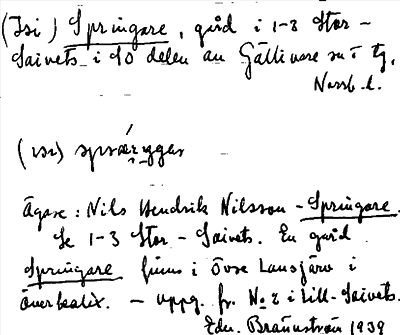 (Isi) Springare, gård i 1-3 Stor-
Saivets i SO delen av Gällivare sn i tg,
Norrb. l.
(isi)
Ägare: Nils Hendrik Nilsson - Springare.
Se 1-3 Stor-Saivets. En gård
Springare finns i Övre Lansjärv i
Överkalix. - uppg. fr. No 2 i Lill-Saivets.
Edv. Brännström 1939